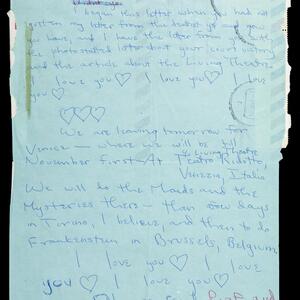 I began this letter when you had not
my letter from the and now
you have, and I have the letter from you with
the photostated letter about your court victory
and the article about the Living Theatre.
I love you♡ I love you♡ I love
you♡
♡♡♡
We are leaving tomorrow for
Venice — where we will be till
November first — At Living Theatre
Teatro Ridotto,
Venezia, Italia
We will do the Maids and the
Mysteries there — then a few days
in Torino, I believe, and then to do
Frankenstein in Brussels, Belgium.
I love you♡ I love
you♡ I love you♡